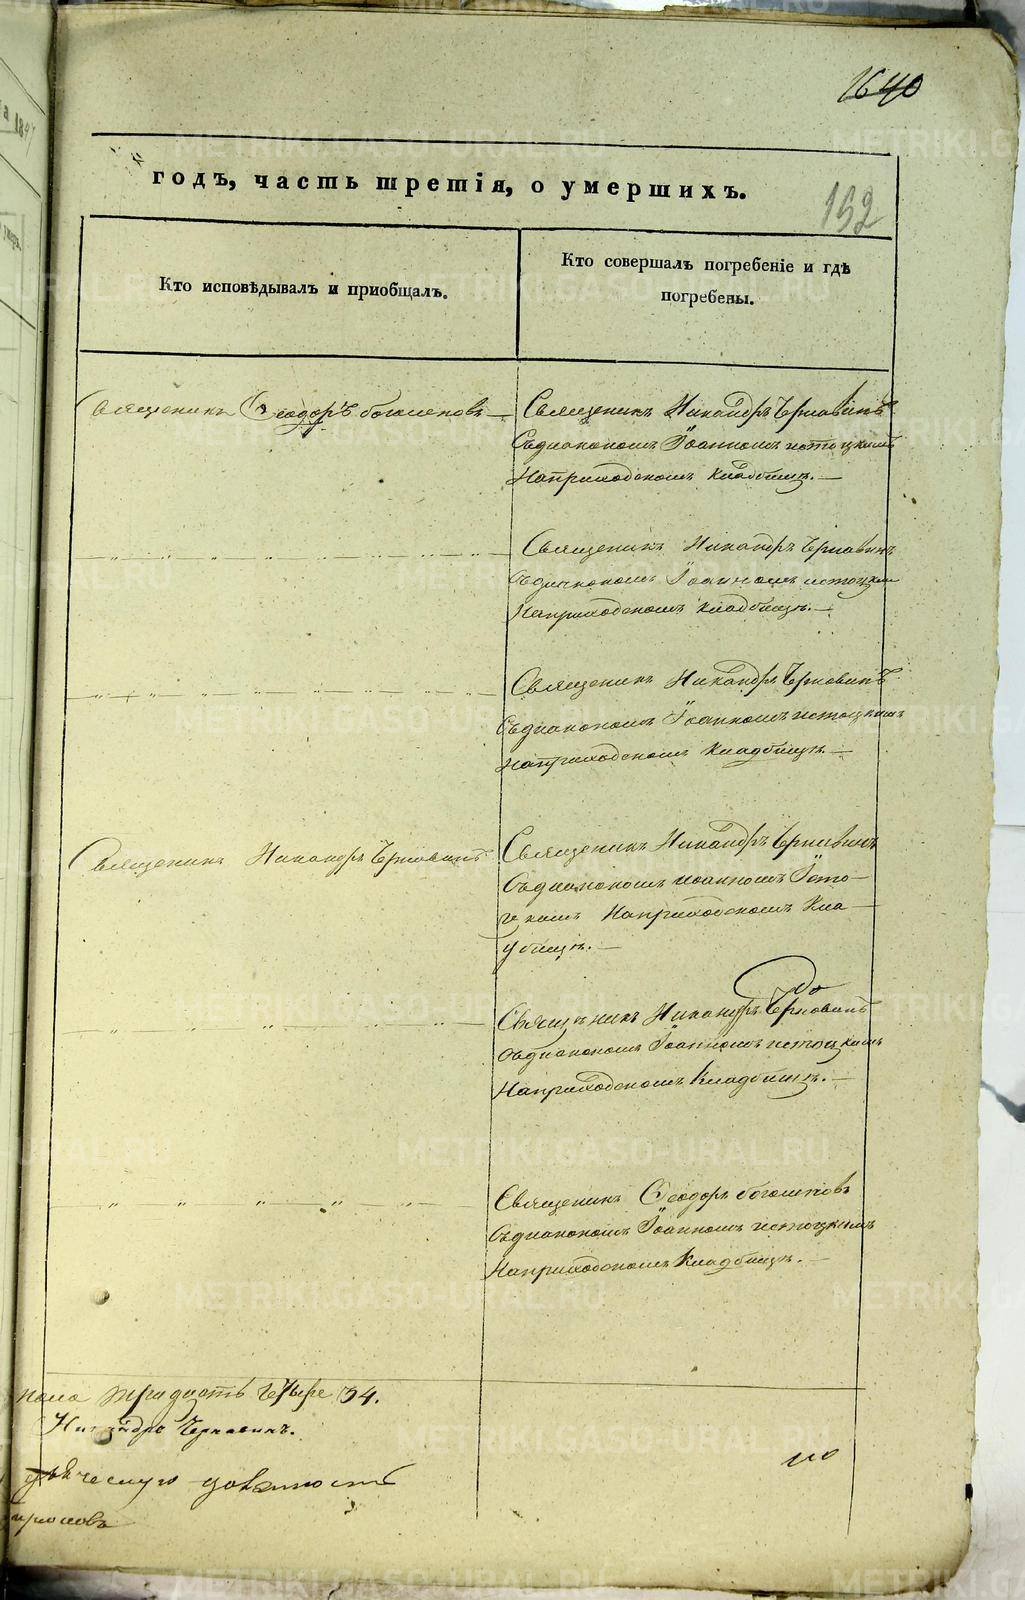 1640
годъ, часть третія, о умершихъ.
152
Кто исповѣдывалъ и пріобщалъ.
Кто совершалъ погребеніе и гдѣ
погребены.
Священикъ Ѳеодоръ богомеповъ
Священикъ Никандръ Чернавинъ
Съдиакономъ Іоанномъ истоцкимъ
Наприходскомъ кладбищѣ.
Священикъ Никандръ Чернавинъ
Съдиакономъ Іоанномъ истоцким
Наприходскомъ кладбищѣ.
Священикъ Никандръ Чернавинъ
Съдиакономъ Іоанномъ истоцкимъ
Наприходскомъ Кладбищѣ.
Священикъ Никандръ Чернавинъ
Священикъ Никандръ Чернавинъ
Съдиакономъ иоанномъ Істо-
цкимъ Наприходскомъ Кла-
дбищѣ.
Священикъ Никандръ Чернавинъ
Съдиакономъ Іоанномъ истоцкимъ
Наприходскомъ Кладбищѣ.
Священикъ Ѳеодоръ богомеповъ
Съдиакономъ Іоанномъ истоцкимъ
Наприходскомъ Кладбищѣ.
пола тридцать четыре 34.
Никандръ Чернавинъ.
должность
METRIKI.GASO-URAL.RU